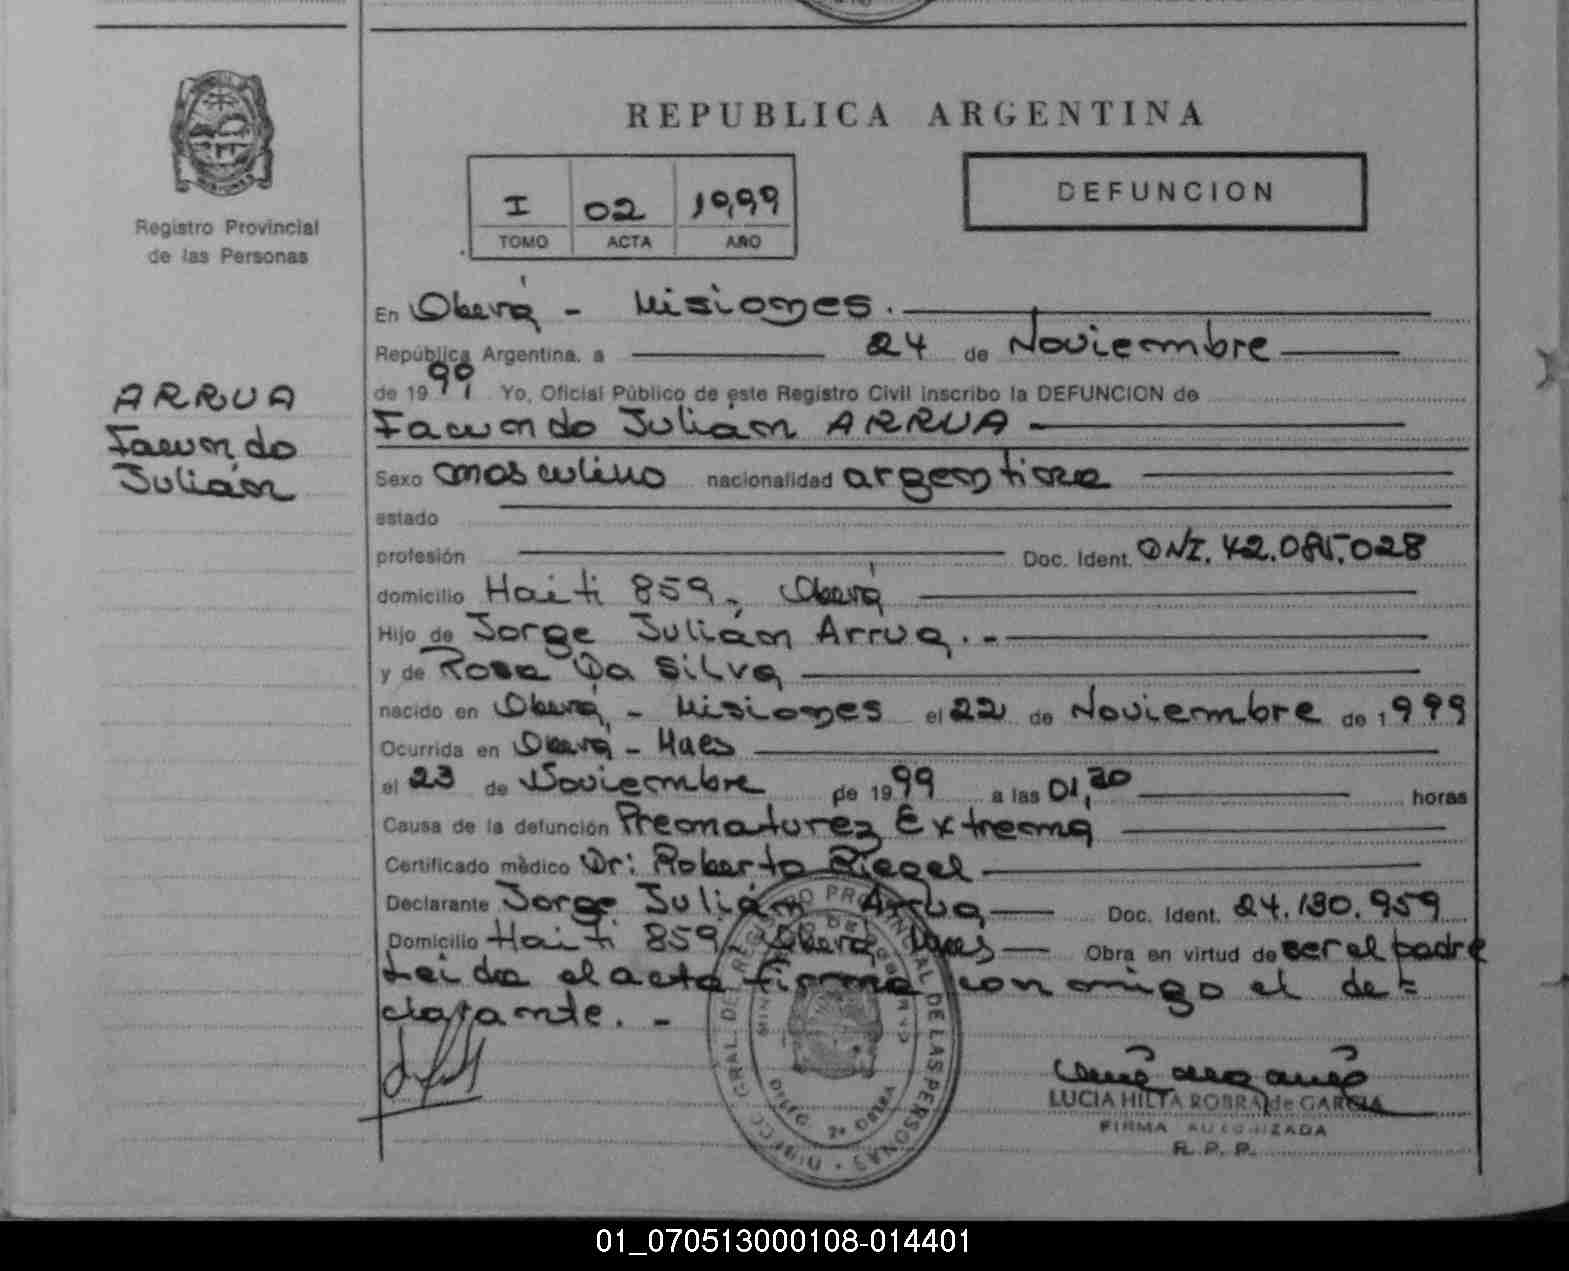 REPUBLICA ARGENTINA
I 02 1999
TOMO ACTA AÑO
DEFUNCION
Registro Provincial
de las Personas
ARRUA
Facundo
Julián
En Oberá - Misiones.
República Argentina, a 24 de Noviembre
de 1999 Yo, Oficial Público de este Registro Civil inscribo la DEFUNCION de
Facundo Julián ARRUA
Sexo masculino nacionalidad argentina
estado
profesión Doc. Ident. DNI. 42.085.028
domicilio Haiti 859 - Oberá
Hijo de Jorge Julián Arrua. -
y de Rosa Da Silva
nacido en Oberá - Misiones el 22 de Noviembre de 1999
Ocurrida en Oberá - Mnes
el 23 de Noviembre de 1999 a las 01,30 horas
Causa de la defunción Prematurez Extrema
Certificado mèdico Dr: Roberto Riegel
Declarante Jorge Julián Arrua Doc. Ident. 24.130.959
Domicilio Haiti 859 - Oberá Mnes Obra en virtud de ser el padre
Leida el acta firma conmigo el de=
clarante. -
LUCIA HILTA ROBRA de GARCIA
FIRMA AUTORIZADA
R. P. P.
DIRECC. GRAL. DEL REGISTRO PROVINCIAL DE LAS PERSONAS
DELEG. 2ª OBERA
01_070513000108-014401